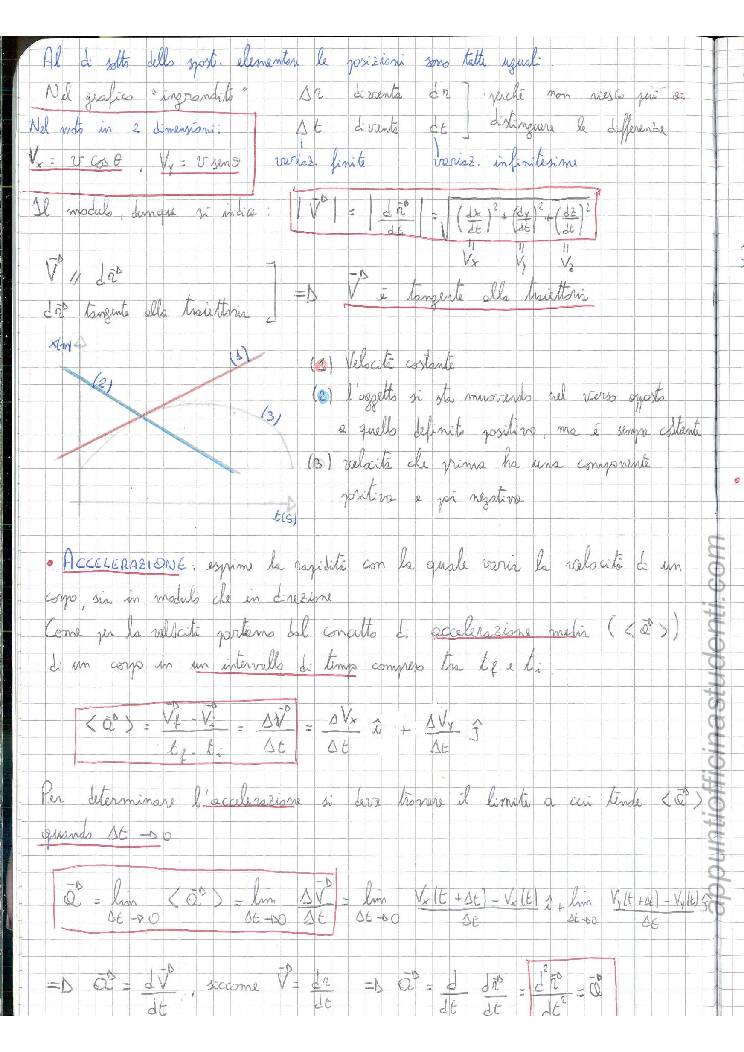 Al di sotto dello spost. elementare le posizioni sono tutte uguali.
Nel grafico "ingrandito" Δr diventa dr ] perché non riesco più a
Nel moto in 2 dimensioni: Δt diventa dt ] distinguere le differenze
Vx = v cosθ, Vy = v senθ variaz. finite variaz. infinitesime
Il modulo, dunque si indica: |V⃗| = |dr⃗/dt| = √((dx/dt)² + (dy/dt)² + (dz/dt)²)
= Vx = Vy = Vz
V⃗ // dr⃗
dr⃗ tangente alla traiettoria ] => V⃗ è tangente alla traiettoria
x(m)
(1)
(2)
(3)
t(s)
(1) Velocità costante
(2) l'oggetto si sta muovendo nel verso opposto
a quello definito positivo, ma è sempre costante
(3) velocità che prima ha una componente
positiva e poi negativa
• ACCELERAZIONE: esprime la rapidità con la quale varia la velocità di un
corpo, sia in modulo che in direzione
Come per la velocità partiamo dal concetto di accelerazione media (<a⃗>)
di un corpo in un intervallo di tempo compreso tra tf e ti.
<a⃗> = (V⃗f - V⃗i)/(tf - ti) = ΔV⃗/Δt = ΔVx/Δt î + ΔVy/Δt ĵ
Per determinare l'accelerazione si deve trovare il limite a cui tende <a⃗>
quando Δt → 0
a⃗ = lim Δt→0 <a⃗> = lim Δt→0 ΔV⃗/Δt = lim Δt→0 (Vx(t+Δt) - Vx(t))/Δt î + lim Δt→0 (Vy(t+Δt) - Vy(t))/Δt ĵ
=> a⃗ = dV⃗/dt, siccome V⃗ = dr/dt => a⃗ = d/dt dr⃗/dt = d²r⃗/dt² = a⃗
appuntiofficinastudenti.com